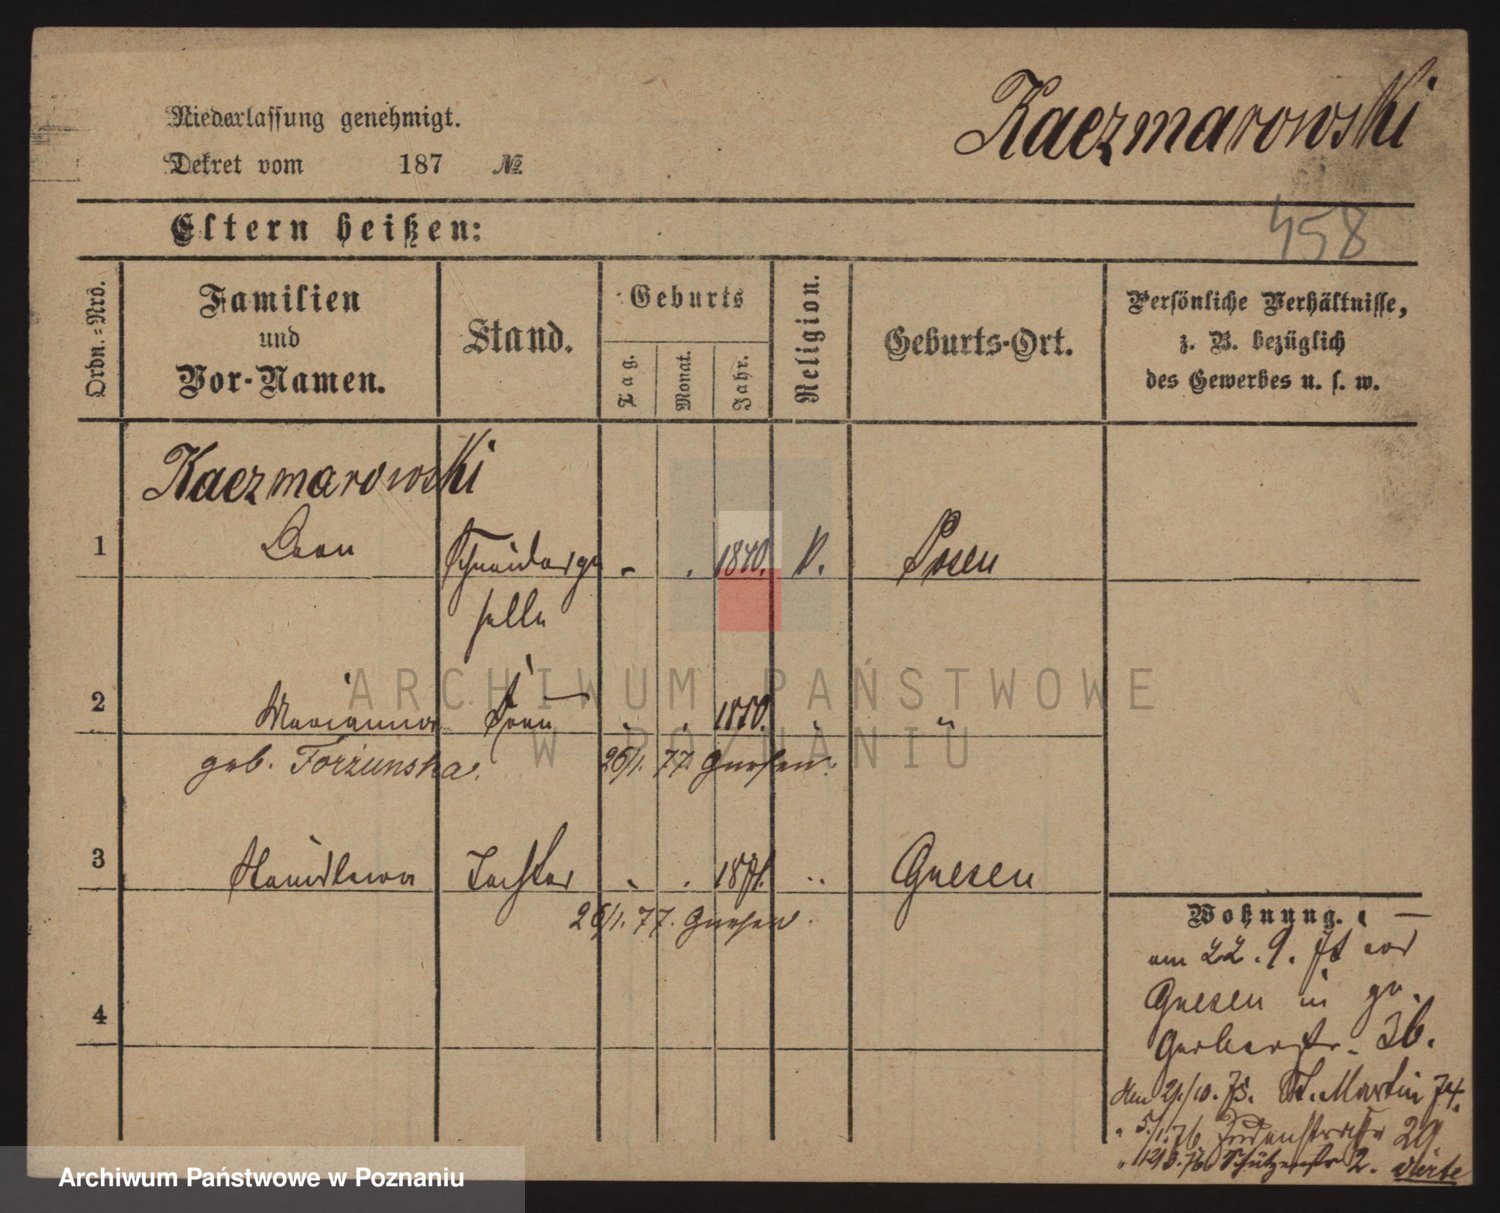 Kaczmarowski
Niederlassung genehmigt.
Dekret vom 187 №
458
Eltern heißen:
Ordn.=Nrö.
Familien
und
Vor-Namen.
Stand.
Geburts
Tag.
Monat.
Jahr.
Religion.
Geburts-Ort.
Persönliche Verhältnisse,
z. B. bezüglich
des Gewerbes u. s. w.
Kaczmarowski
1 Schneiderge 1840. Posen
selle
2 Marianna Frau 1850. "
geb. Torzunska. 26/1. 77. Gnesen.
3 Stanislawa Tochter 1871. " Gnesen
26/1. 77. Gnesen.
4
Wohnung.
am 22. 9. 75 aus
Gnesen in gr.
Gerberstr. 36.
Den 21./10. 75. St. Martin 74.
" 5/1. 76 Judenstraße 29
" Schützenstr 2.
ARCHIWUM PAŃSTWOWE
W POZNANIU
Archiwum Państwowe w Poznaniu